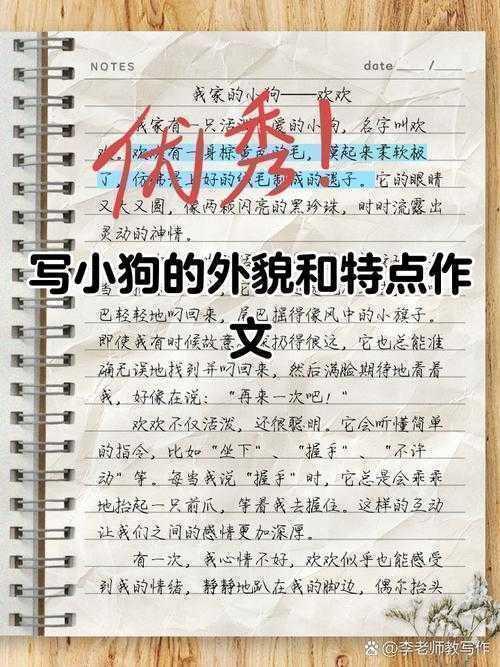 NOTES date / 
我家的小狗——欢欢
我家有一只活泼可爱的小狗，名字叫欢
欢。欢欢有一身棕黄色的毛，摸起来柔软极
了，仿佛是上好的绒毛制成的毯子。它的眼睛
又大又圆，像两颗闪亮的黑珍珠，时时流露出
灵动的神情。
优秀！
写小狗的外貌和特点作
文
巴轻轻地叼回来，尾巴摇得像风中的小旗子。
即使我有时候故意 扔得很远，它也总能准
确无误地找到并叼回来，然后满脸期待地看着
我，好像在说：“再来一次吧！”
欢欢不仅活泼，还很聪明。它会听懂简单
的指令，比如“坐下”、“握手”、“不许
动”等。每当我说“握手”时，它总是会乖乖
地抬起一只前爪，等着我去握住。这样的互动
让我们之间的感情更加深厚。
有一次，我心情不好，欢欢似乎也能感受
到我的情绪，静静地趴在我的脚边，偶尔抬头
李老师教写作